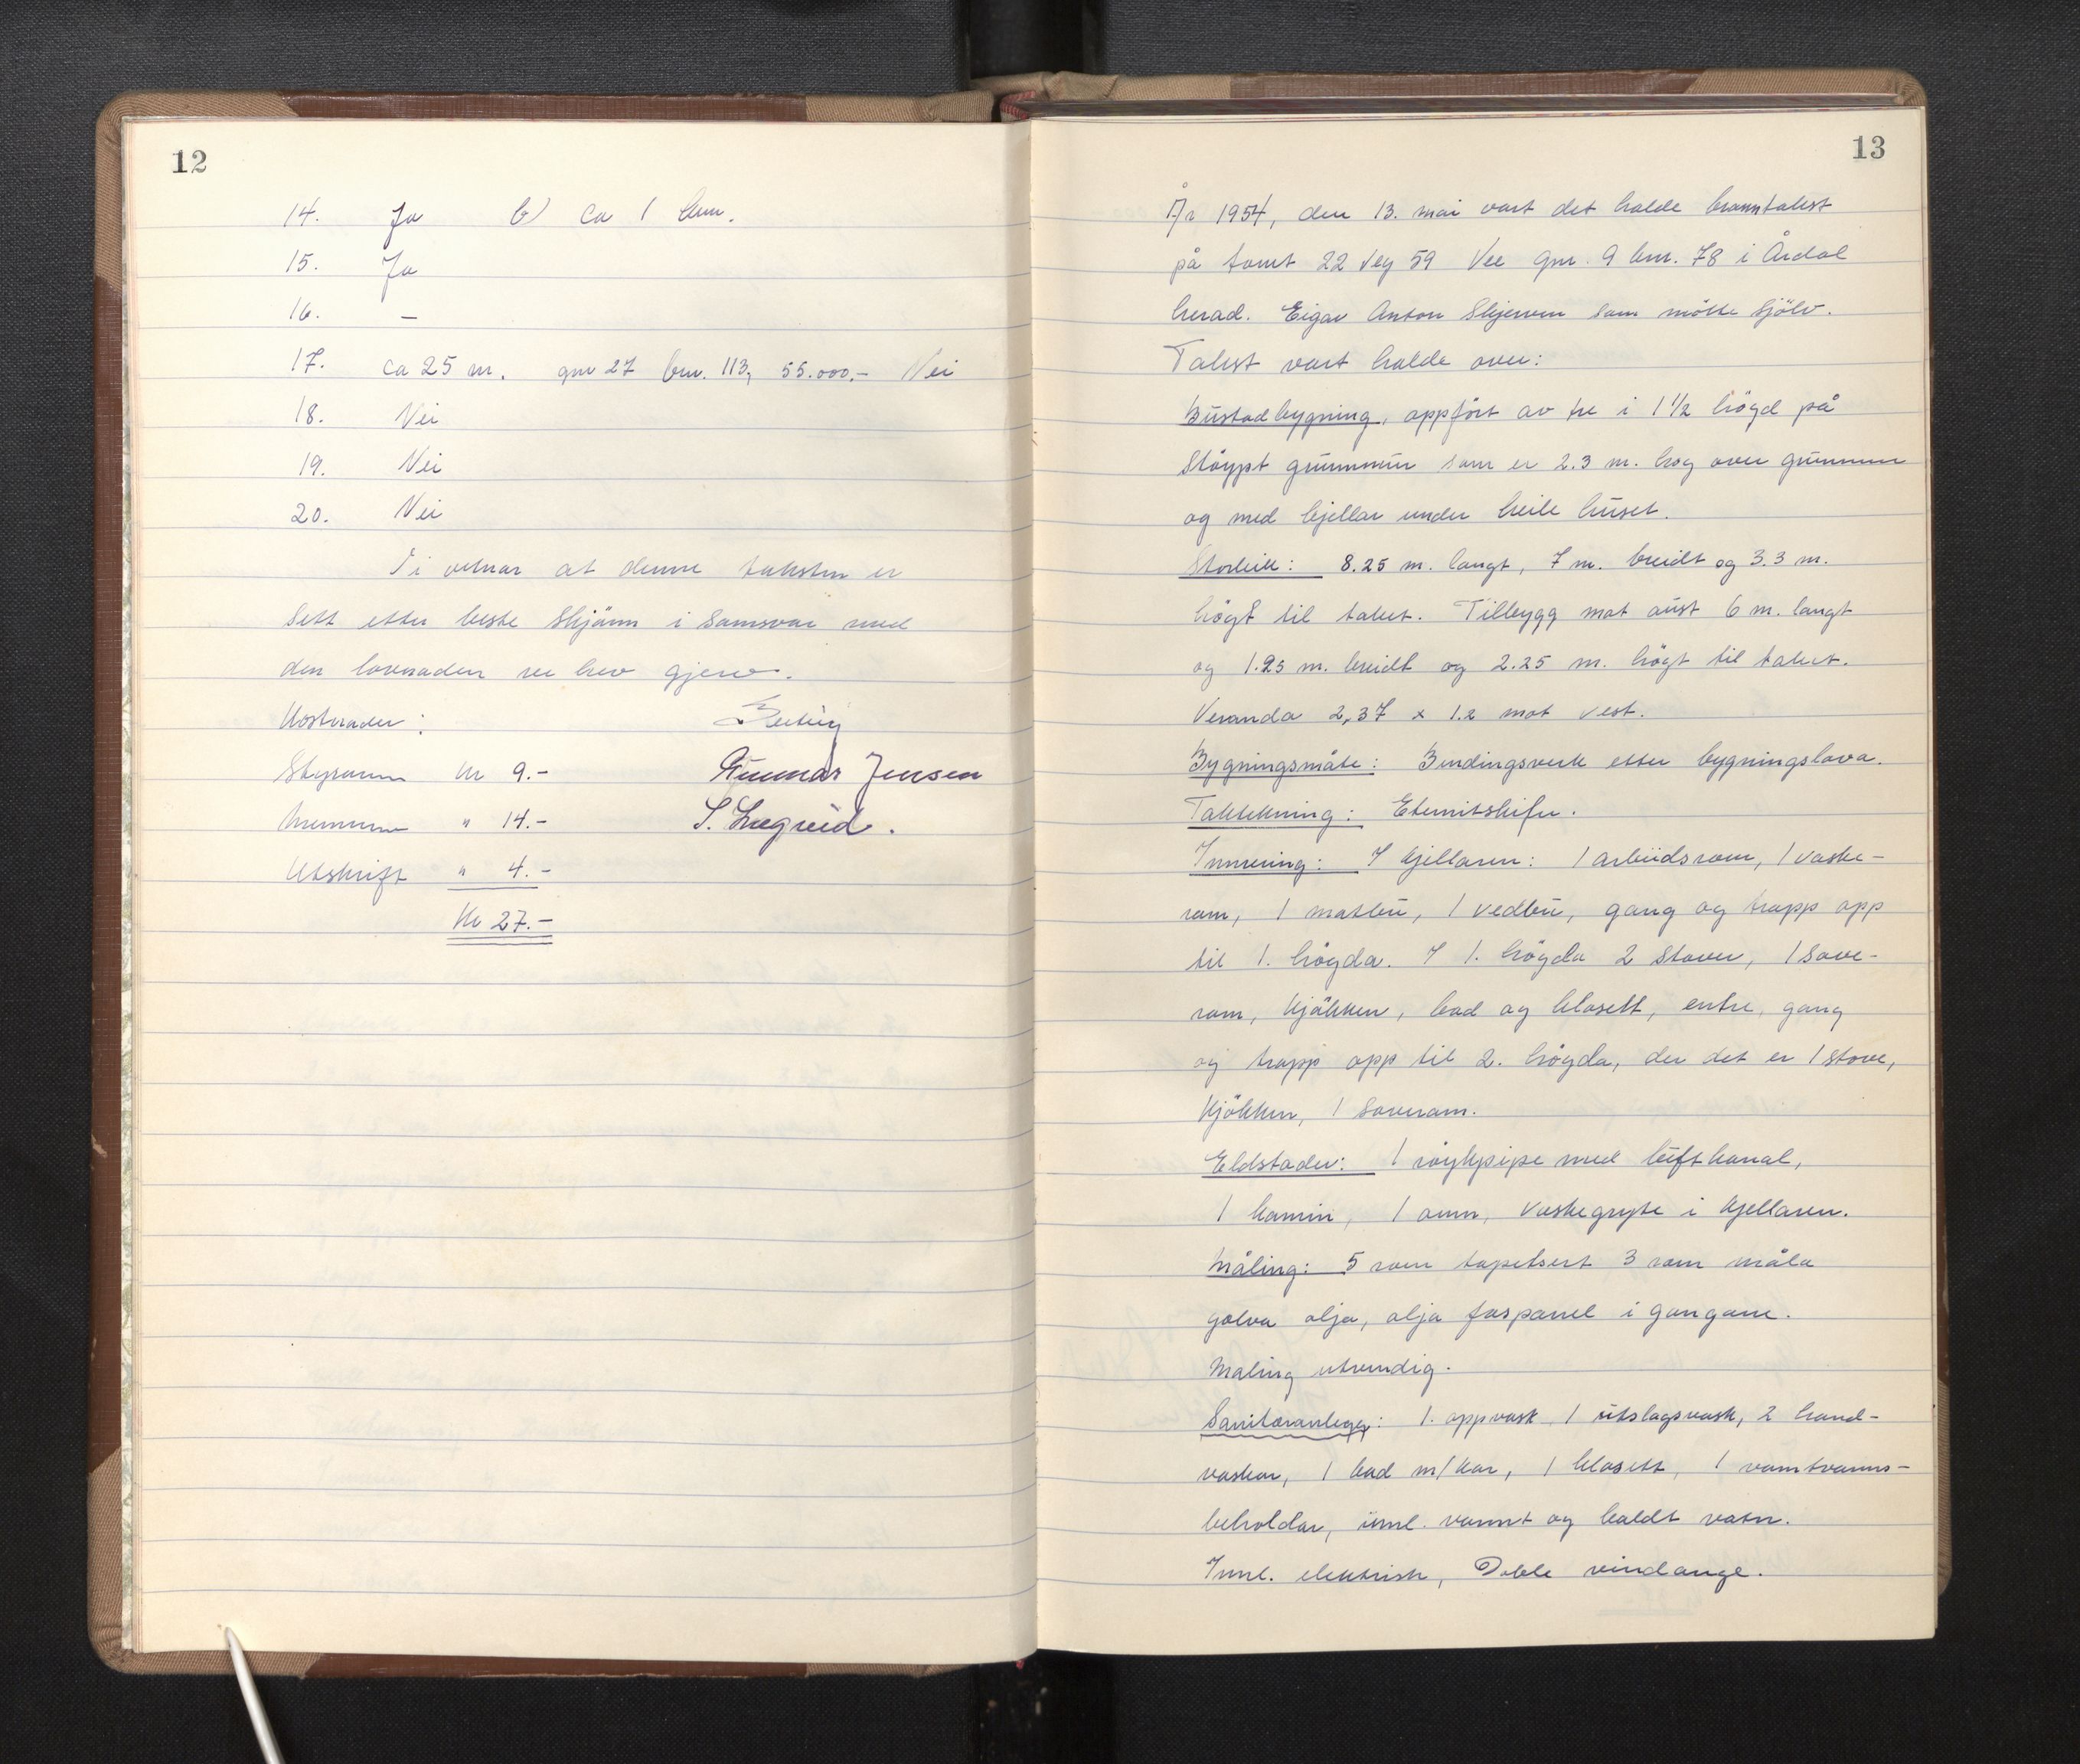 12
14. Ja b) ca 1 km.
15. Ja
16. —
17. ca 25 m. gnr 27 bnr. 113, 55.000,- Nei
18. Nei
19. Nei
20. Nei
Vi vitnar at denne taksten er
sett etter beste skjönn i samsvar med
den lovnaden me hev gjeve.
Kostnader:
Styraren kr 9.-
Gunnar Jensen
Mennene " 14.-
Utskrift " 4.-
Kr 27.-
13
År 1954, den 13. mai vart det halde branntakst
på tomt 22 Veg 59 Vee gnr. 9 bnr. 78 i Årdal
herad. Eigar Anton Skjerven som mötte sjölv.
Takst vart halde over:
Bustadbygning, oppfört av tre i 1 1/2 högd på
stöypt grunnmur som er 2.3 m. hög over grunnen
og med kjellar under heile huset.
Storleik: 8.25 m. langt, 7 m. breidt og 3.3 m.
högt til taket. Tilbygg mot aust 6 m. langt
og 1.25 m. breidt og 2.25 m. högt til taket.
Veranda 2,37 x 1.2 mot vest.
Bygningsmåte: Bindingsverk etter bygningslova.
Taktekning: Eternitskifer.
Innreing: I kjellaren: 1 arbeidsrom, 1 vaske-
rom, 1 matbu, 1 vedbu, gang og trapp opp
til 1. högda. I 1. högda 2 stover, 1 sove-
rom, kjökken, bad og klosett, entre, gang
og trapp opp til 2. högda, der det er 1 stove,
kjökken, 1 soverom.
Eldstader: 1 röykpipe med luftkanal,
1 kamin, 1 omn, vaskegryte i kjellaren.
Måling: 5 rom tapetsert 3 rom måla
golva olja, olja faspanel i gangane.
Maling utvendig.
Sanitæranlegg: 1. oppvask 1 utslagsvask, 2 hand-
vaskar, 1 bad m/kar, 1 klosett, 1 varmtvanns-
beholdar, innl. varmt og kaldt vatn.
Innl. elektrisk, Doble vindauge.